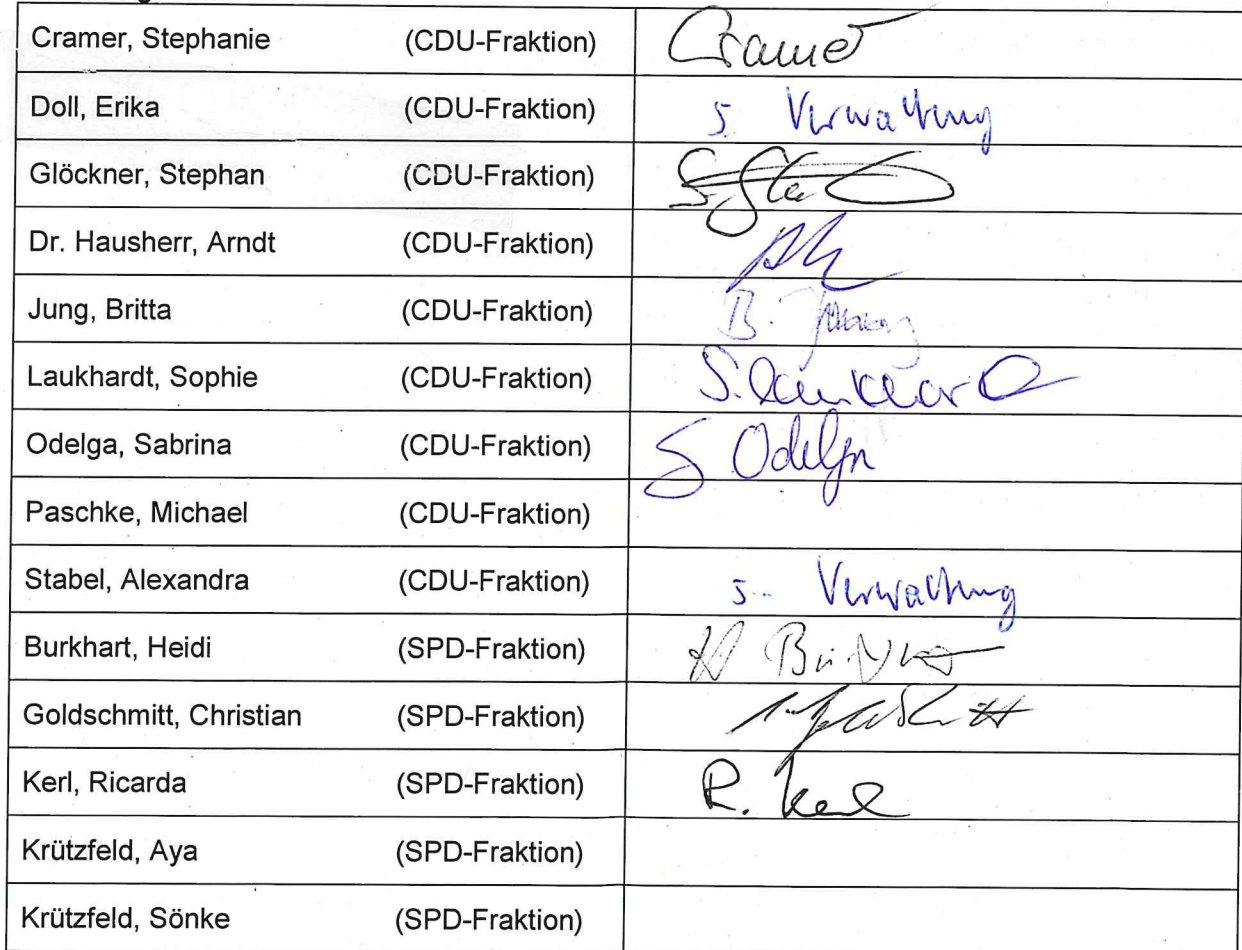 Cramer, Stephanie (CDU-Fraktion) Cramer
Doll, Erika (CDU-Fraktion) s. Verwaltung
Glöckner, Stephan (CDU-Fraktion)
Dr. Hausherr, Arndt (CDU-Fraktion)
Jung, Britta (CDU-Fraktion) B. Jung
Laukhardt, Sophie (CDU-Fraktion) S. Laukhardt
Odelga, Sabrina (CDU-Fraktion) S Odelga
Paschke, Michael (CDU-Fraktion)
Stabel, Alexandra (CDU-Fraktion) s. Verwaltung
Burkhart, Heidi (SPD-Fraktion)
Goldschmitt, Christian (SPD-Fraktion)
Kerl, Ricarda (SPD-Fraktion) R. Kerl
Krützfeld, Aya (SPD-Fraktion)
Krützfeld, Sönke (SPD-Fraktion)